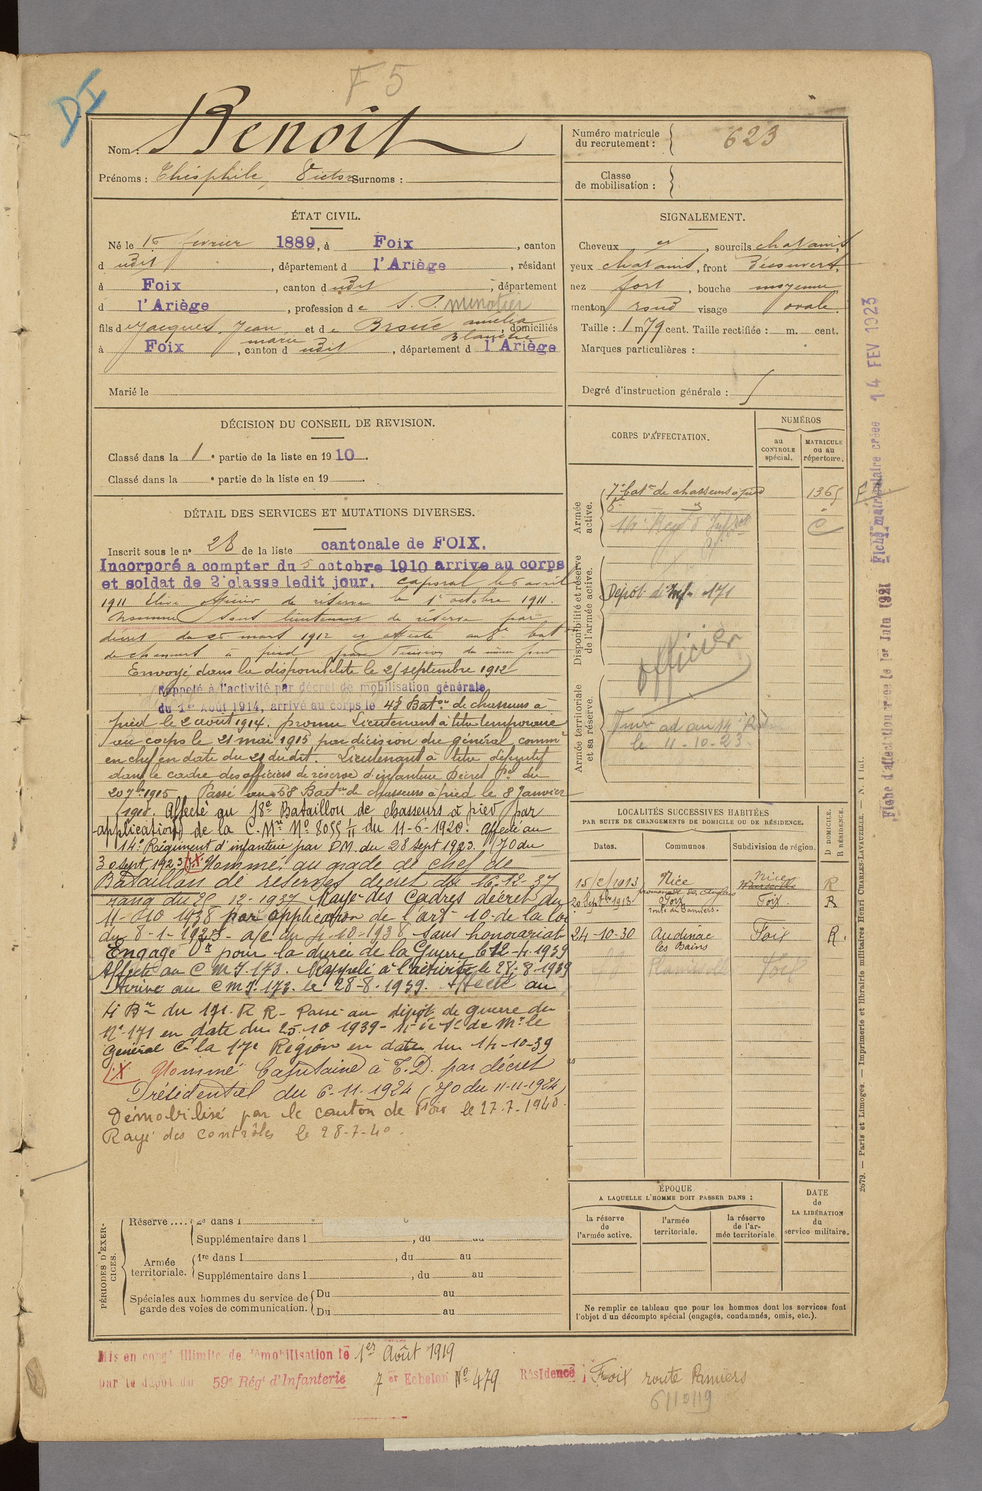 F 5
DI
Nom : Benoit
Prénoms : Théophile, Victor Surnoms :
Numéro matricule du recrutement : 623
Classe de mobilisation :
ÉTAT CIVIL.
Né le 15 février 1889, à Foix, canton
d udit, département d l'Ariège, résidant
à Foix, canton d udit, département
d l'Ariège, profession de S. P. minotier
fils de Jacques, Jean marie et de Broué amélia Blanche, domiciliés
à Foix, canton d udit, département d l'Ariège
Marié le
SIGNALEMENT.
Cheveux et, sourcils chatains
yeux chatains, front découvert,
nez fort, bouche moyenne
menton rond visage ovale.
Taille : 1 m 79 cent. Taille rectifiée : m. cent.
Marques particulières :
Degré d'instruction générale : 5
DÉCISION DU CONSEIL DE REVISION.
Classé dans la 1e partie de la liste en 1910.
Classé dans la e partie de la liste en 19
DÉTAIL DES SERVICES ET MUTATIONS DIVERSES.
Inscrit sous le n° 28 de la liste cantonale de FOIX.
Incorporé a compter du 5 octobre 1910 arrive au corps
et soldat de 2e classe ledit jour. caporal le 6 avril
1911 Elève officier de réserve le 1er octobre 1911.
Nommé sous lieutenant de réserve par
décret du 25 mart 1912 et affecté au 8e bat
de chasseurs à pied par décision du même jour
Envoyé dans la disponibilité le 25 septembre 1912
Rappelé à l'activité par décret de mobilisation générale
du 1er Août 1914, arrivé au corps le 48 Baton de chasseurs à
pied le 2 août 1914. promu Lieutenant à titre temporaire
au corps le 21 mai 1915 par décision du général comm
en chef en date du 21 dudit. Lieutenant à titre définitif
dans le cadre des officiers de réserve d'infanterie Décret Pel du
20 7bre 1915 Passé au 58 Baton de chasseurs à pied le 8 Janvier
1918. Affecté au 18e Bataillon de chasseurs à pied par
application de la C. Mlle N° 8055 1/4 du 11-6-1920. Affecté au
14e Régiment d'infanterie par D.M. du 28 sept 1923. (JO du
30 sept 1923) X Nommé au grade de chef de
Bataillon de réserves décret du 16.12-37
rang du 25 12-1937 Rayé des Cadres décret du
11-010 1938 par application de l'art 10 de la loi
du 8-1-1925- a/c du 4 10-1938 sans honorariat
Engagé Vre pour la durée de la Guerre le 12-4-1939
Affecté au C M I. 173. Rappelé à l'activité le 28-8-1939
Arrivé au C M I. 173 le 28-8-1939. Affecté au
4 Bn du 191. R R - Passé au dépôt de guerre du
N° 171 en date du 25.10 1939- de Mr le
Général Ct la 17e Région en date du 14-10-39
X Nommé Capitaine à T.D. par décret
Présidentiel du 6.11.1924 (JO du 11-11-1924)
Démobilisé par le canton de Foix le 27-7-1940.
Rayé des contrôles le 28-7-40.
CORPS D'AFFECTATION.
NUMÉROS
au CONTRÔLE spécial.
MATRICULE ou au RÉPERTOIRE.
Armée active.
7e baton de chasseurs à pied 1365
14e Reg d'Infrie
Disponibilité et réserve de l'armée active.
Dépôt d'Inf. 171
officier
Armée territoriale et sa réserve.
le 11-10-23.
LOCALITÉS SUCCESSIVES HABITÉES
PAR SUITE DE CHANGEMENTS DE DOMICILE OU DE RÉSIDENCE.
Dates. Communes. Subdivision de région. D DOMICILE. R RÉSIDENCE.
15/2/1913 Nice promenade des Anglais Nice R
20 Septbre 1913 Foix Foix. R
24-10-30 Audinac les Bains Foix R.
Foix
ÉPOQUE
A LAQUELLE L'HOMME DOIT PASSER DANS :
la réserve de l'armée active.
l'armée territoriale.
la réserve de l'armée territoriale.
DATE de LA LIBÉRATION du service militaire.
Ne remplir ce tableau que pour les hommes dont les services font
l'objet d'un décompte spécial (engagés, condamnés, omis, etc.).
PÉRIODES D'EXERCICES.
Réserve .... 2e dans l
Supplémentaire dans l , du au
Armée territoriale.
1re dans l , du au
Supplémentaire dans l , du au
Spéciales aux hommes du service de garde des voies de communication.
Du au
Du au
Mis en congé illimité de démobilisation le 1er Août 1919
par le dépôt du 59e Régt d'Infanterie 7e Echelon N° 479 Résidence : Foix route Pamiers
6110119
Fiche matriculaire créée 14 FEV 1923
Fiche d'affectation créée le 1er Juin 1921
2679. — Paris et Limoges. — Imprimerie et librairie militaires Henri CHARLES-LAVAUZELLE. — N. 1 tal.